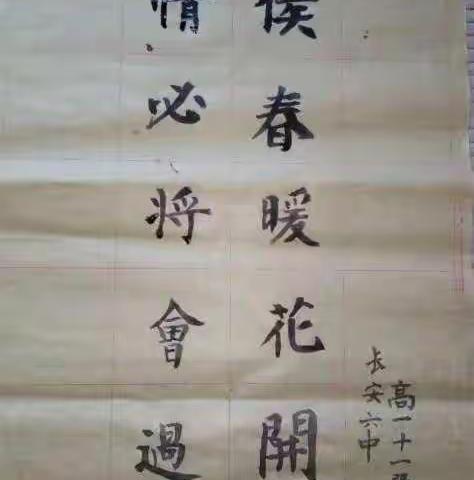 情必将會過
候春暖花開
长安六中
高一十一